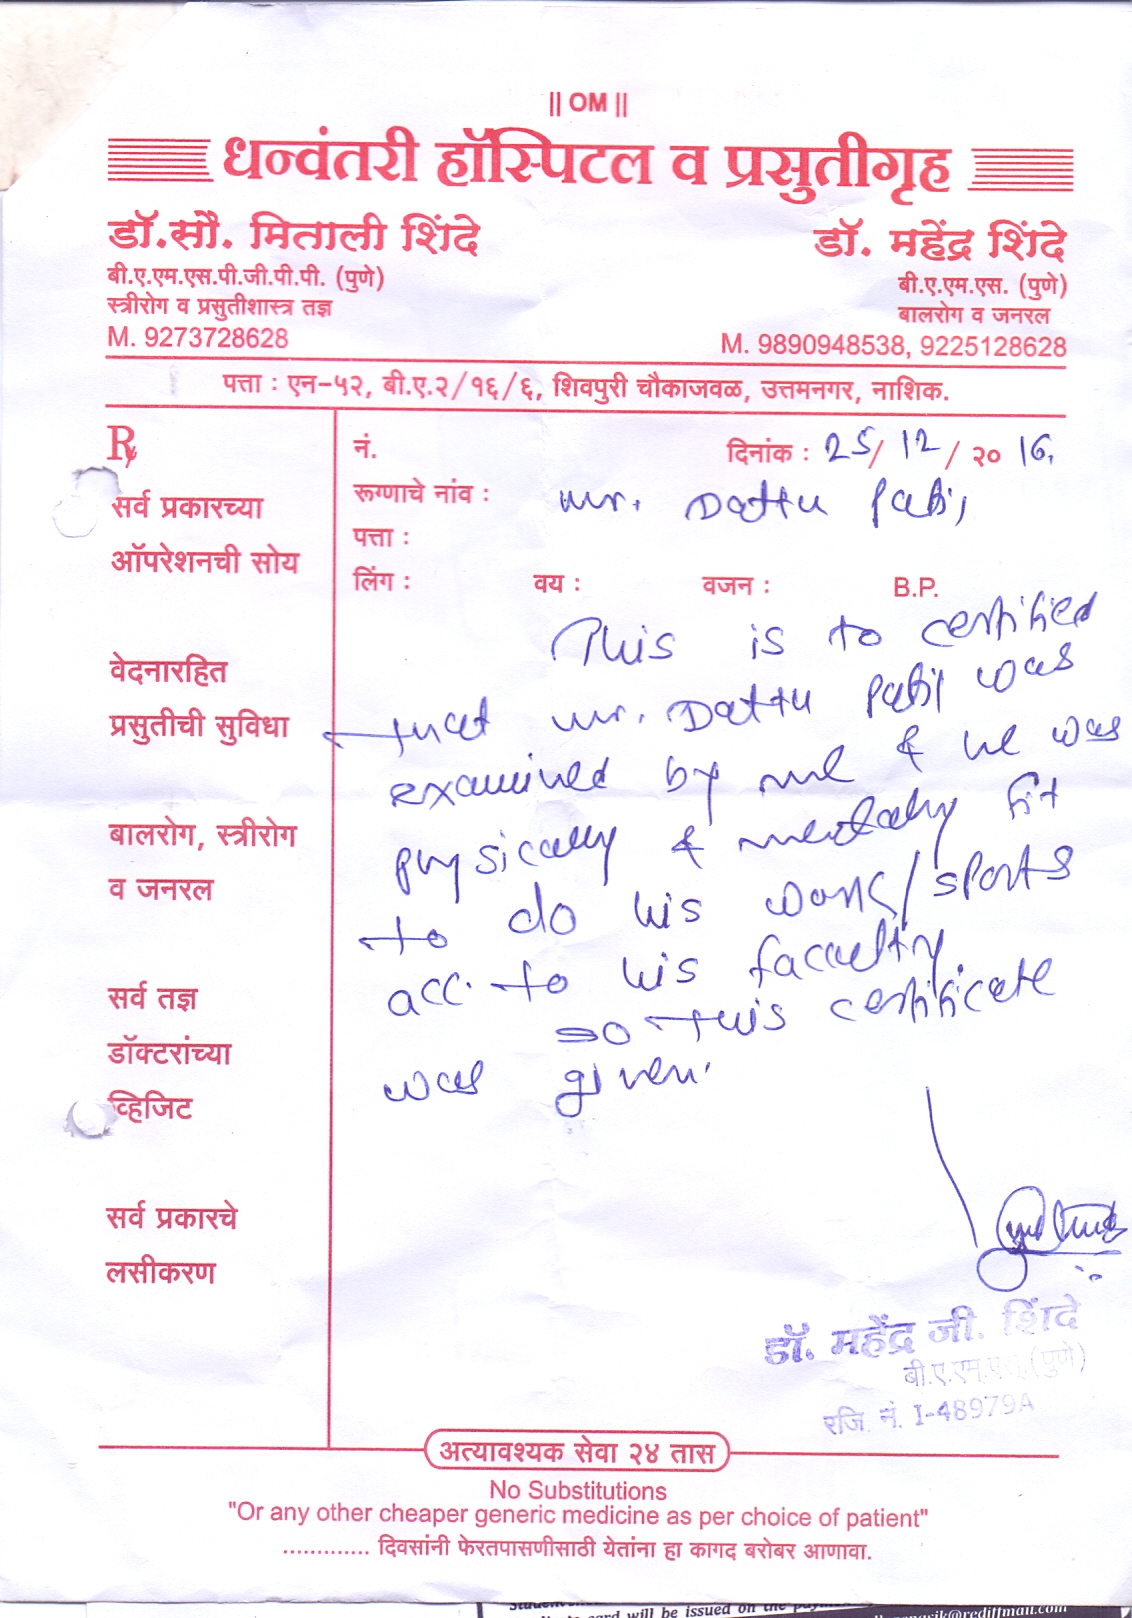 || OM ||
धन्वंतरी हॉस्पिटल व प्रसुतीगृह
डॉ.सौ. मिताली शिंदे
बी.ए.एम.एस.पी.जी.पी.पी. (पुणे)
स्त्रीरोग व प्रसुतीशास्त्र तज्ञ
M. 9273728628
डॉ. महेंद्र शिंदे
बी.ए.एम.एस. (पुणे)
बालरोग व जनरल
M. 9890948538, 9225128628
पत्ता : एन-५२, बी.ए.२/१६/६, शिवपुरी चौकाजवळ, उत्तमनगर, नाशिक.
नं. दिनांक : 25/12/२० 16.
रूग्णाचे नांव : Mr. Dattu Patil
पत्ता :
लिंग : वय : वजन : B.P.
This is to certified
that Mr. Dattu Patil was
examined by me & he was
physically & mentally fit
to do his work/sports
acc. to his facculty.
so this certificate
was given.
Rx
सर्व प्रकारच्या
ऑपरेशनची सोय
वेदनारहित
प्रसुतीची सुविधा
बालरोग, स्त्रीरोग
व जनरल
सर्व तज्ञ
डॉक्टरांच्या
व्हिजिट
सर्व प्रकारचे
लसीकरण
डॉ. महेंद्र जी. शिंदे
बी.ए.एम.एस.(पुणे)
रजि. नं. I-48979A
अत्यावश्यक सेवा २४ तास
No Substitutions
"Or any other cheaper generic medicine as per choice of patient"
............. दिवसांनी फेरतपासणीसाठी येतांना हा कागद बरोबर आणावा.
card will be issued on the
@rediffmail.com